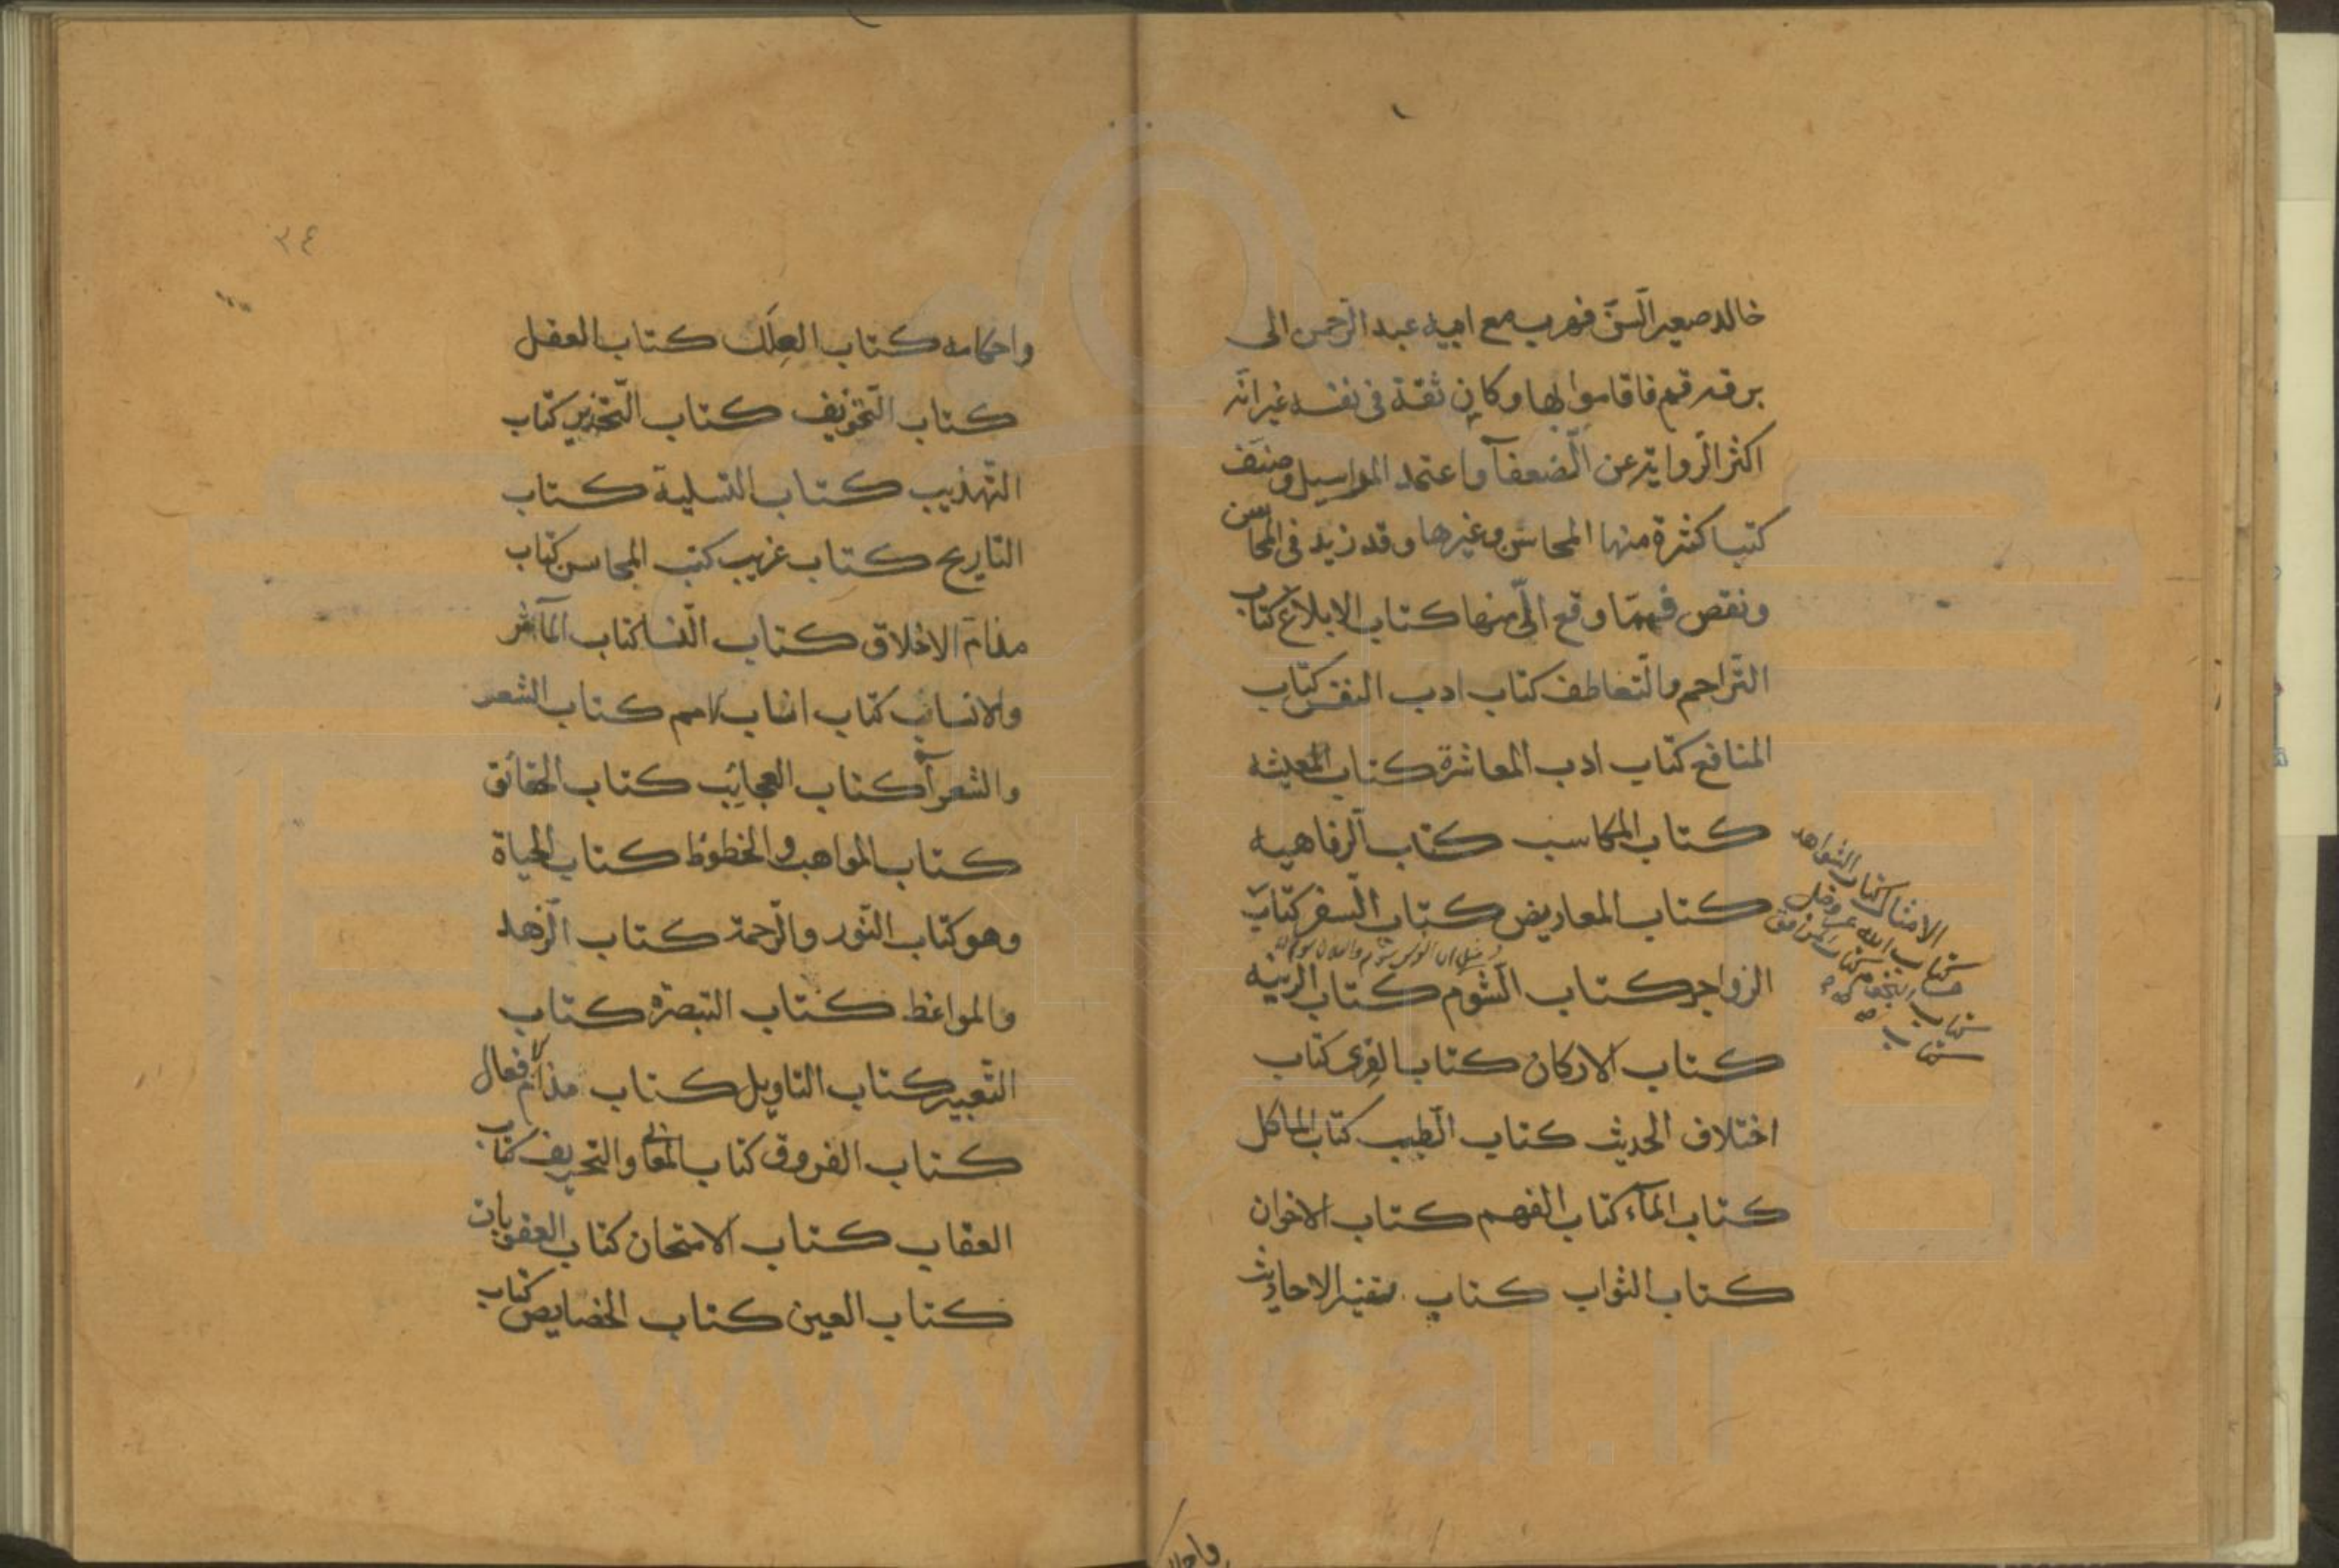 خالد صغير السّن فهرب مع ابيه عبد الرّحمن الى
برقه قم فاقاموا بها وكان ثقة فى نفسه غير انّه
اكثر الرّواية عن الضّعفآ واعتمد المراسيل وصنّف
كتبا كثيرة منها المحاسن وغيرها وقد زيد فى المحاسن
ونقص فممّا وقع الىّ منها كتاب الابلاغ كتاب
التّراحم والتّعاطف كتاب ادب النفس كتاب
المنافع كتاب ادب المعاشرة كتاب المعيشه
كتاب المكاسب كتاب الرّفاهيه
كتاب المعاريض كتاب السّفر كتاب
الزواجر كتاب الشّوم كتاب الزينه
كتاب الاركان كتاب القرى كتاب
اختلاف الحديث كتاب الطّيب كتاب الماكل
كتاب المآء كتاب الفهم كتاب الاخوان
كتاب الثواب كتاب تفسير الاحاديث
الامثال كتاب الشواهد
كتاب الله عز وجل
كتاب النجوم كتاب المرافق
كتاب
واحكا
٣٤
واحكامه كتاب العلل كتاب العقل
كتاب التّخويف كتاب التّحذير كتاب
التّهذيب كتاب التسلية كتاب
التاريخ كتاب غريب كتب المحاسن كتاب
مذامّ الاخلاق كتاب النّسا كتاب المآثر
والانساب كتاب انساب الامم كتاب الشعر
والشعرآ كتاب العجائب كتاب الحقائق
كتاب المواهب والحظوظ كتاب الحياة
وهو كتاب النّور والرّحمة كتاب الزّهد
والمواعظ كتاب التبصرة كتاب
التّعبير كتاب التاويل كتاب مذامّ الافعال
كتاب الفروق كتاب المعانى والتحريف كتاب
العقاب كتاب الامتحان كتاب العقوبات
كتاب العين كتاب الخصايص كتاب
www.ical.ir